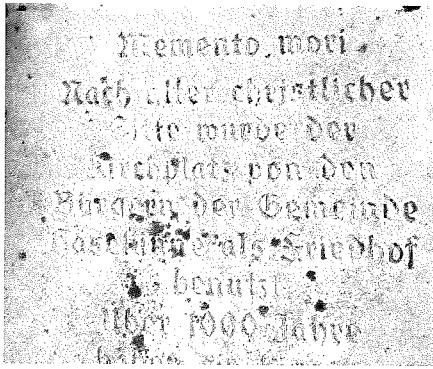 Memento mori.
Nach alter christlicher
Sitte wurde der
Kirchplatz von den
Bürgern der Gemeinde
Haselünne als Friedhof
benutzt
Über 1000 Jahre